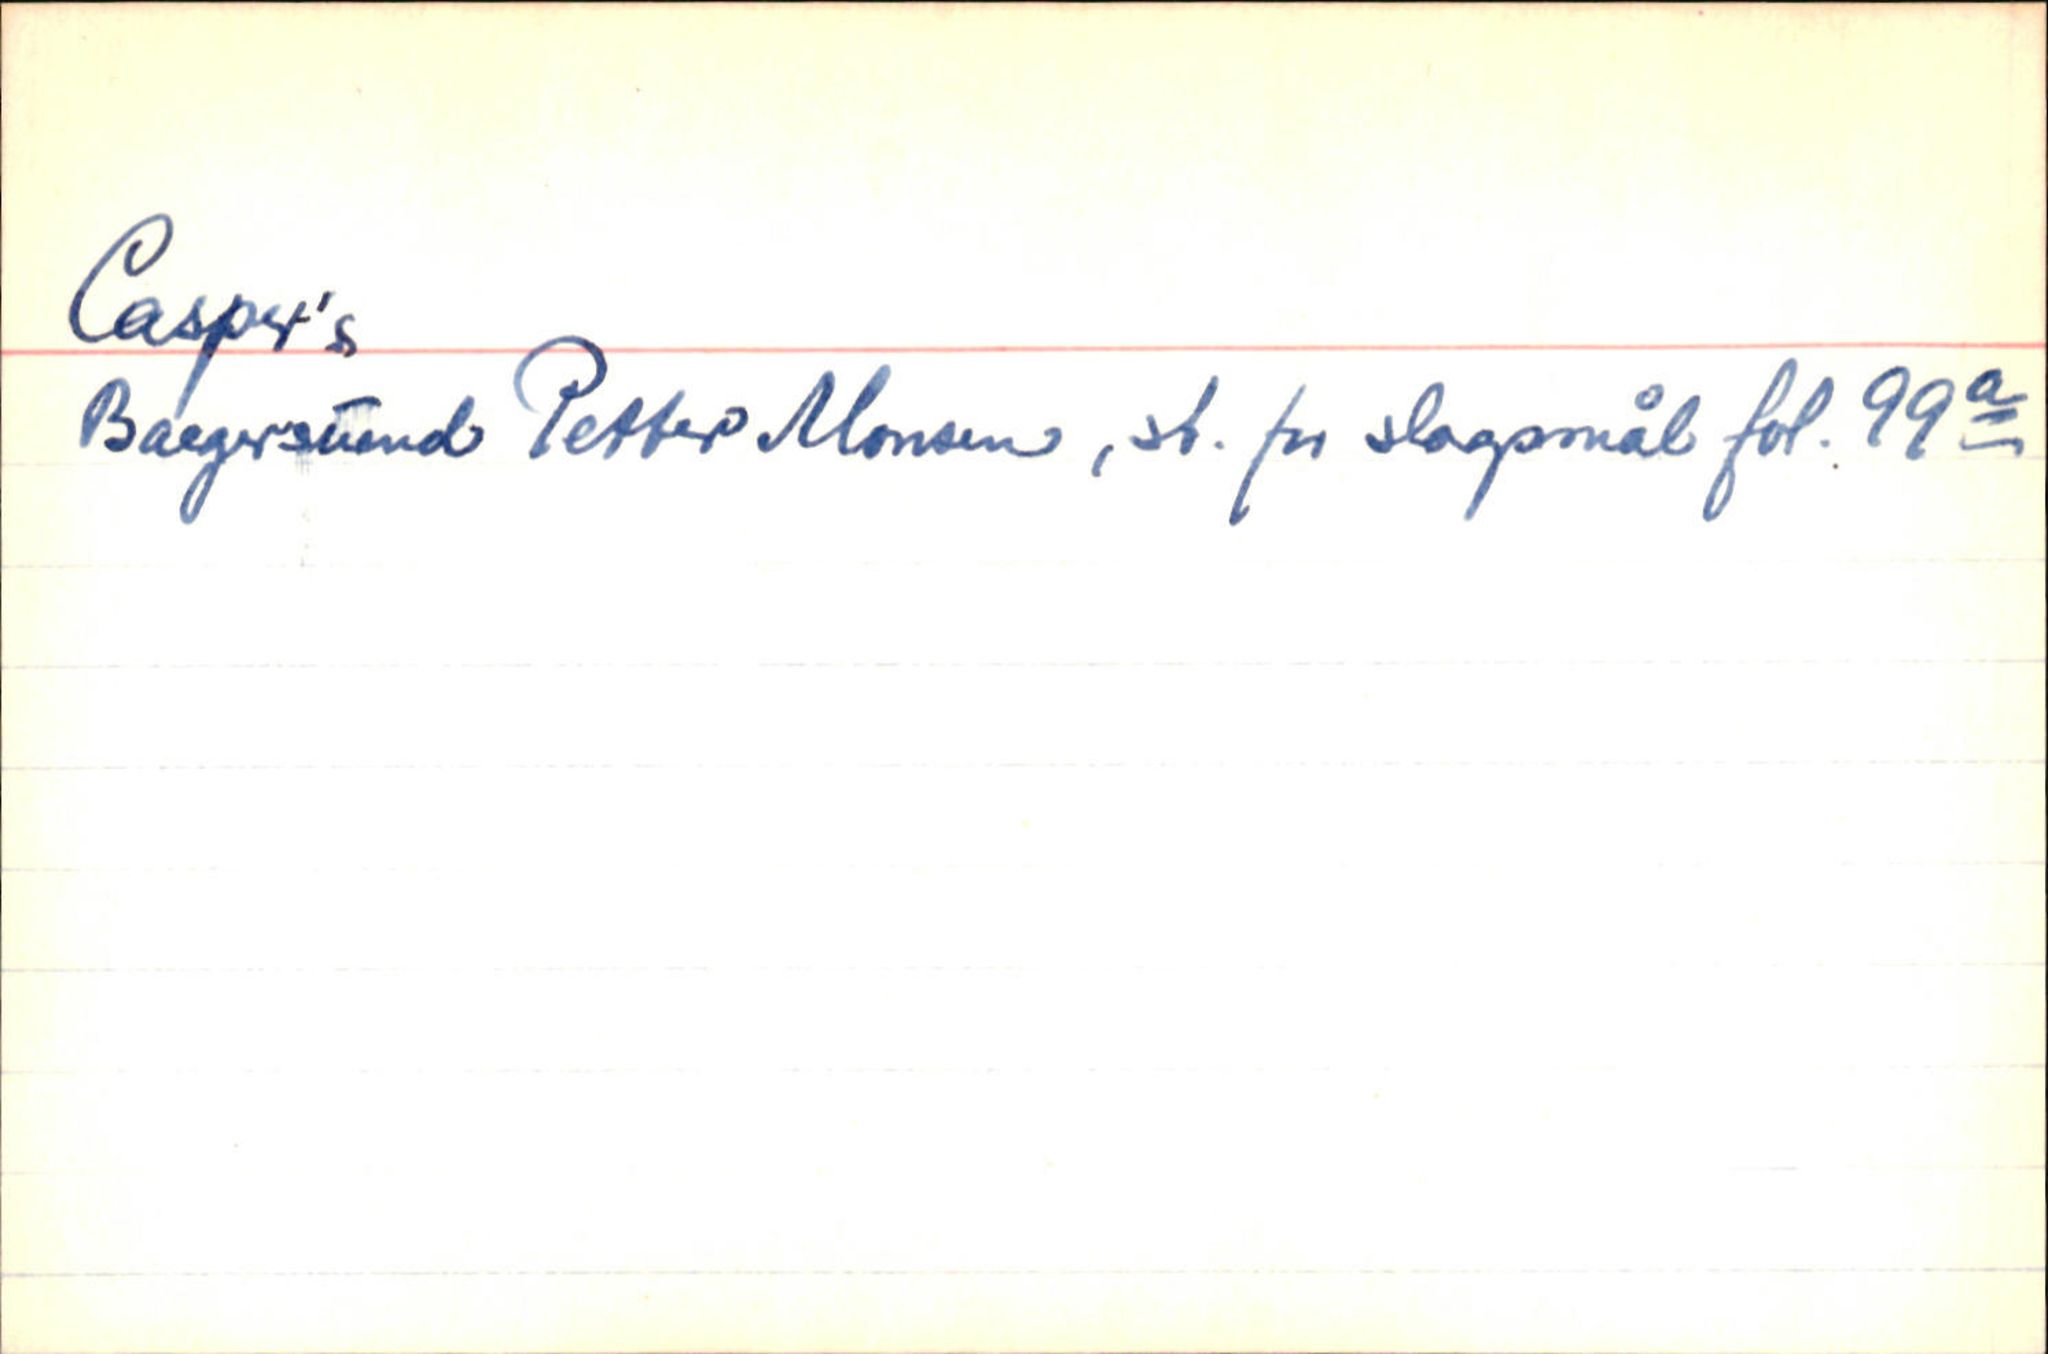 Casper's
Baegersuend Petter Monsen, st. for slagsmål fol. 99a